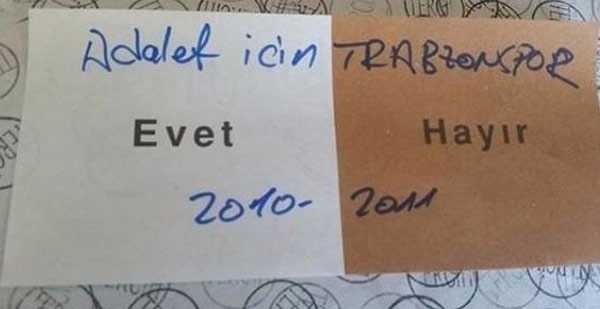 Adalet için TRABZONSPOR
Evet Hayır
2010- 2011